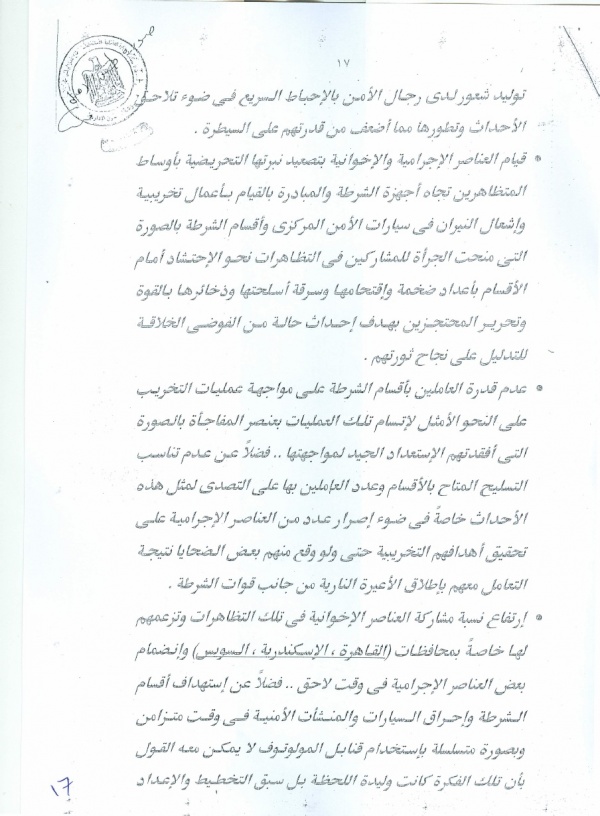 ١٧
توليد شعور لدى رجال الأمن بالإحباط السريع فى ضوء تلاحق
الأحداث وتطورها مما أضعف من قدرتهم على السيطرة .
• قيام العناصر الإجرامية والإخوانية بتصعيد نبرتها التحريضية بأوساط
المتظاهرين تجاه أجهزة الشرطة والمبادرة بالقيام بأعمال تخريبية
وإشعال النيران فى سيارات الأمن المركزى وأقسام الشرطة بالصورة
التى منحت الجرأة للمشاركين فى التظاهرات نحو الإحتشاد أمام
الأقسام بأعداد ضخمة وإقتحامها وسرقة أسلحتها وذخائرها بالقوة
وتحرير المحتجزين بهدف إحداث حالة من الفوضى الخلاقة
للتدليل على نجاح ثورتهم .
• عدم قدرة العاملين بأقسام الشرطة على مواجهة عمليات التخريب
على النحو الأمثل لإتسام تلك العمليات بعنصر المفاجأة بالصورة
التى أفقدتهم الإستعداد الجيد لمواجهتها .. فضلاً عن عدم تناسب
التسليح المتاح بالأقسام وعدد العاملين بها على التصدى لمثل هذه
الأحداث خاصةً فى ضوء إصرار عدد من العناصر الإجرامية على
تحقيق أهدافهم التخريبية حتى ولو وقع منهم بعض الضحايا نتيجة
التعامل معهم بإطلاق الأعيرة النارية من جانب قوات الشرطة .
• إرتفاع نسبة مشاركة العناصر الإخوانية فى تلك التظاهرات وتزعمهم
لها خاصةً بمحافظات (القاهرة ، الإسكندرية ، السويس) وإنضمام
بعض العناصر الإجرامية فى وقت لاحق .. فضلاً عن إستهداف أقسام
الشرطة وإحراق السيارات والمنشآت الأمنية فى وقت متزامن
وبصورة متسلسلة بإستخدام قنابل المولوتوف لا يمكن معه القول
بأن تلك الفكرة كانت وليدة اللحظة بل سبق التخطيط والإعداد
١٧